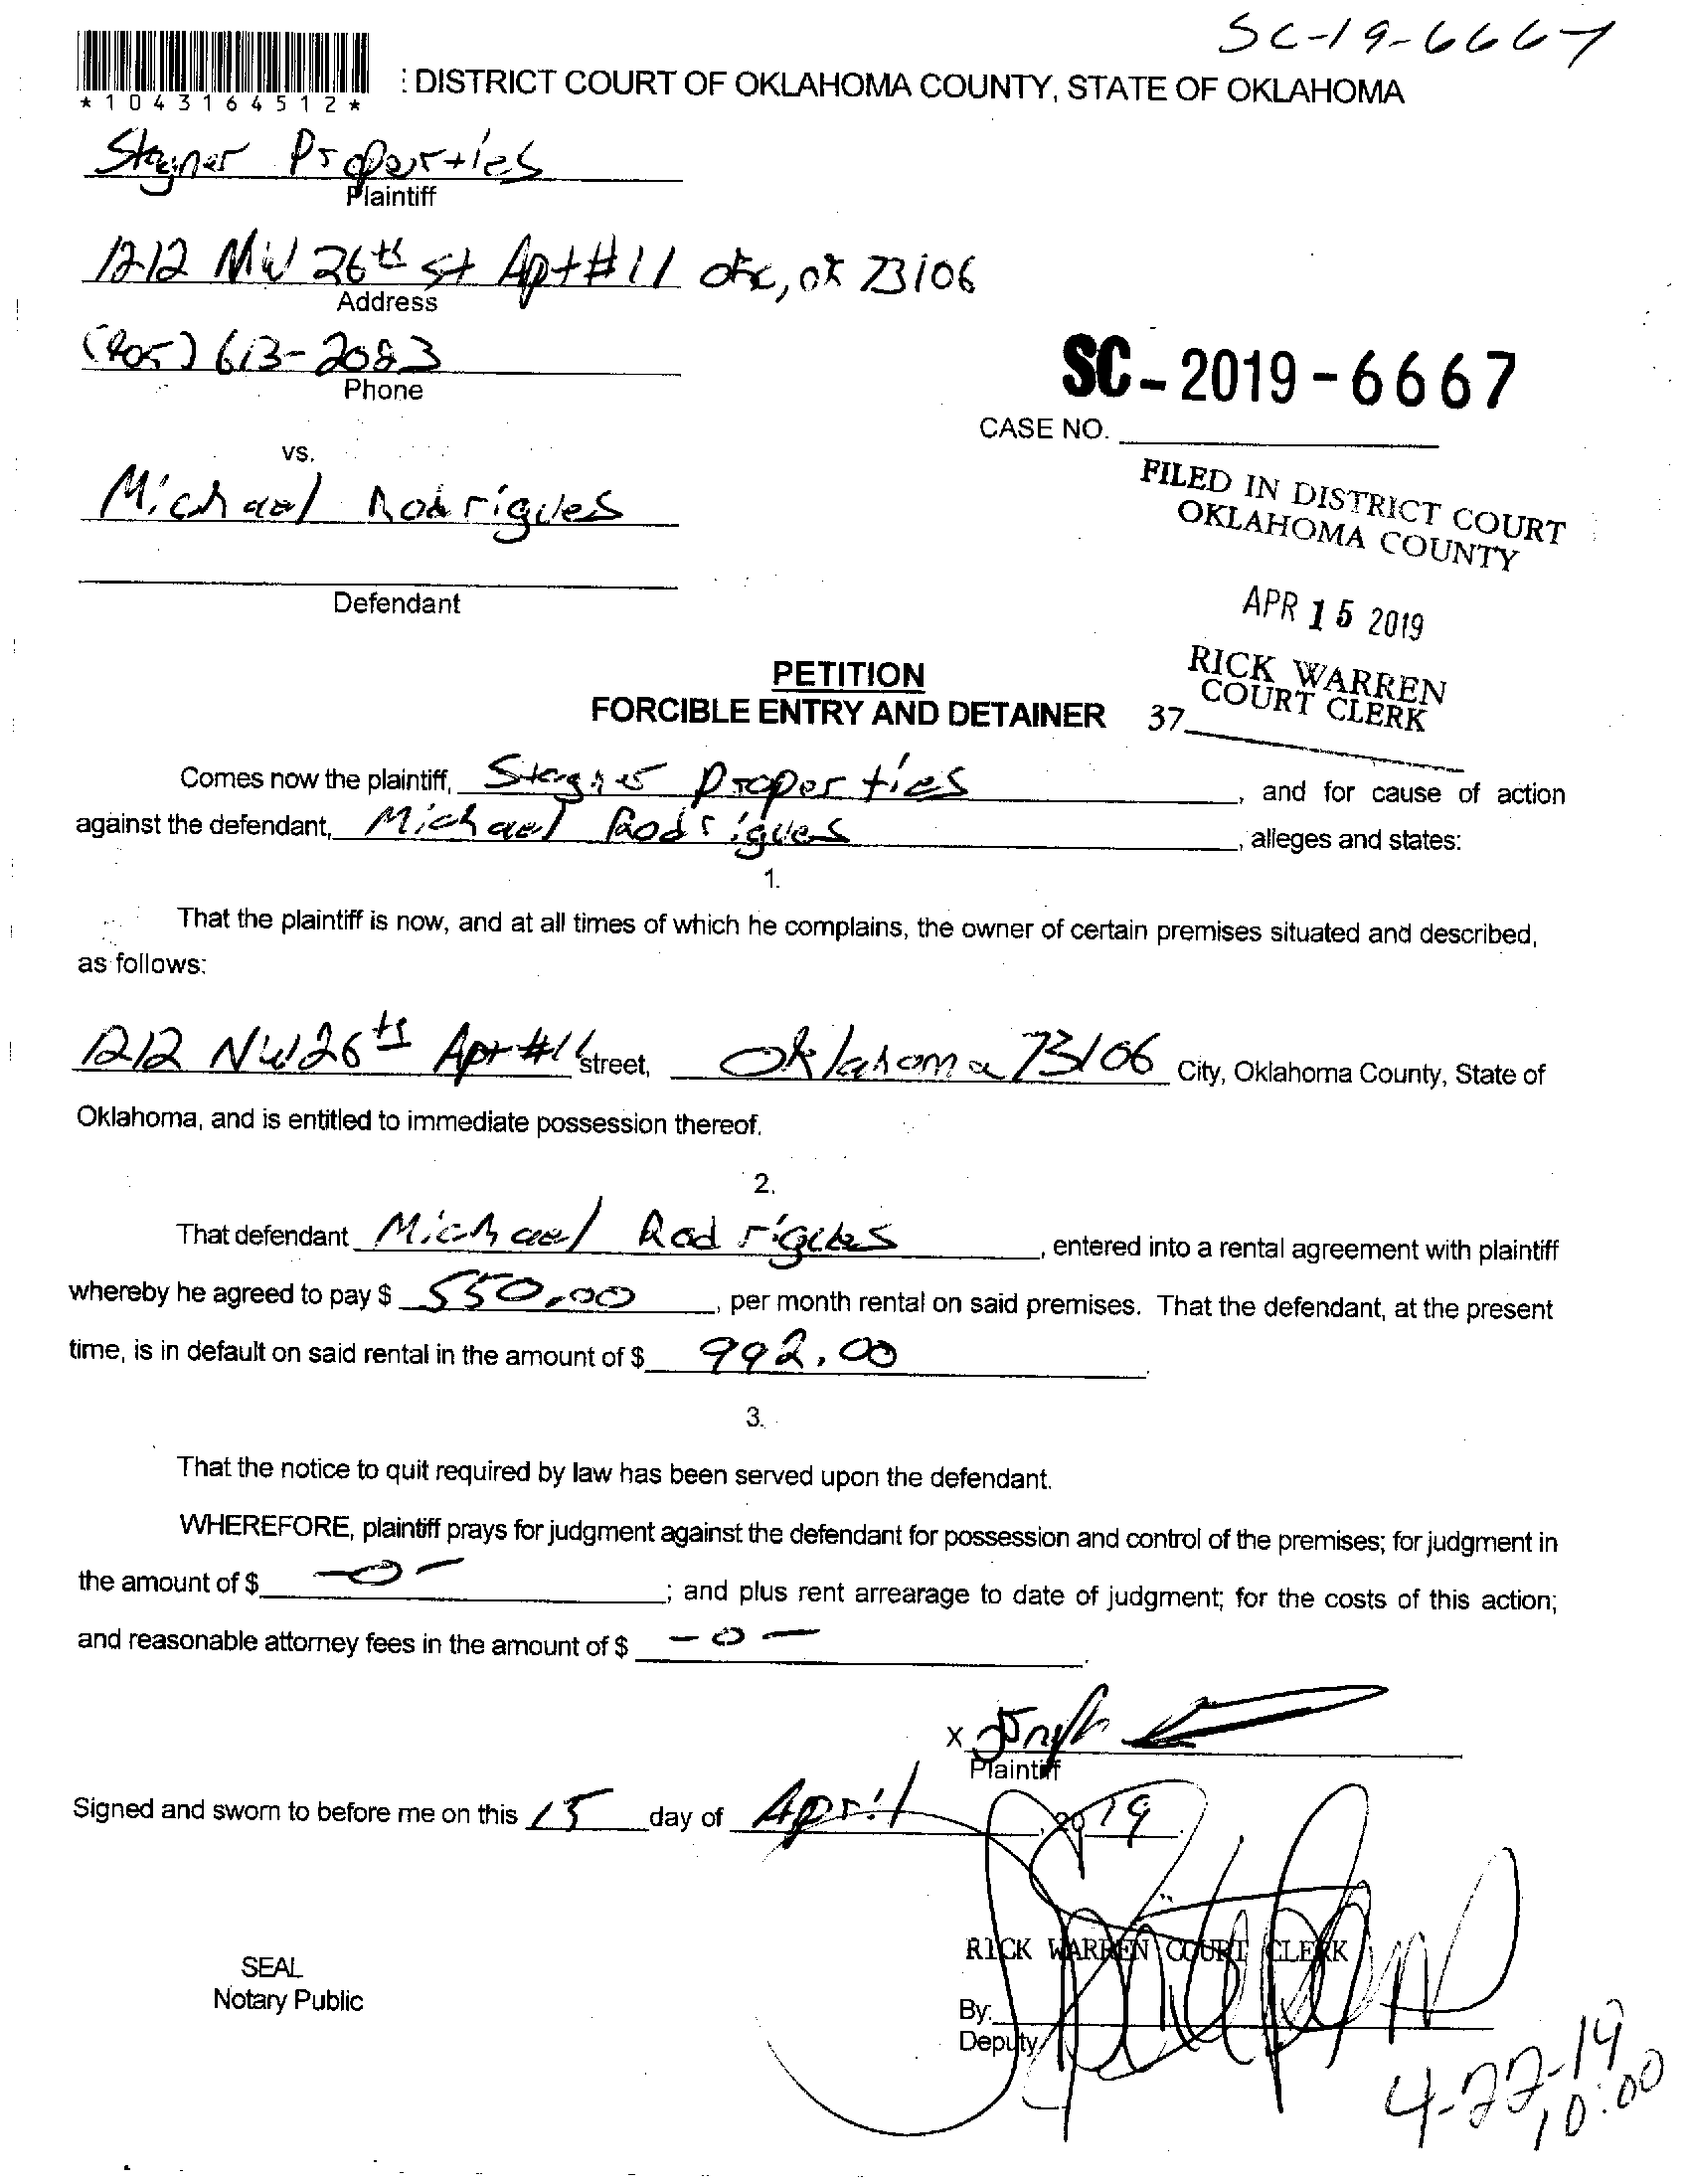 SC-19-6667
*1043164512*
: DISTRICT COURT OF OKLAHOMA COUNTY, STATE OF OKLAHOMA
Properties
Plaintiff
1212 NW 26th St Apt #11 okc, ok 73106
Address
(405) 613-2083
Phone
SC-2019-6667
CASE NO.
vs.
Michael Rodrigues
FILED IN DISTRICT COURT
OKLAHOMA COUNTY
Defendant
APR 15 2019
RICK WARREN
COURT CLERK
37
PETITION
FORCIBLE ENTRY AND DETAINER
Comes now the plaintiff, Properties, and for cause of action
against the defendant, Michael Rodrigues, alleges and states:
1.
That the plaintiff is now, and at all times of which he complains, the owner of certain premises situated and described,
as follows:
1212 NW 26th Apt #11 street, Oklahoma 73106 City, Oklahoma County, State of
Oklahoma, and is entitled to immediate possession thereof.
2.
That defendant Michael Rodrigues, entered into a rental agreement with plaintiff
whereby he agreed to pay $ 550.00, per month rental on said premises. That the defendant, at the present
time, is in default on said rental in the amount of $ 992.00.
3.
That the notice to quit required by law has been served upon the defendant.
WHEREFORE, plaintiff prays for judgment against the defendant for possession and control of the premises; for judgment in
the amount of $ -0-; and plus rent arrearage to date of judgment; for the costs of this action;
and reasonable attorney fees in the amount of $ -0-.
X
Plaintiff
Signed and sworn to before me on this 15 day of April, 2019.
RICK WARREN COURT CLERK
SEAL
Notary Public
By:
Deputy
4-22-19
10:00